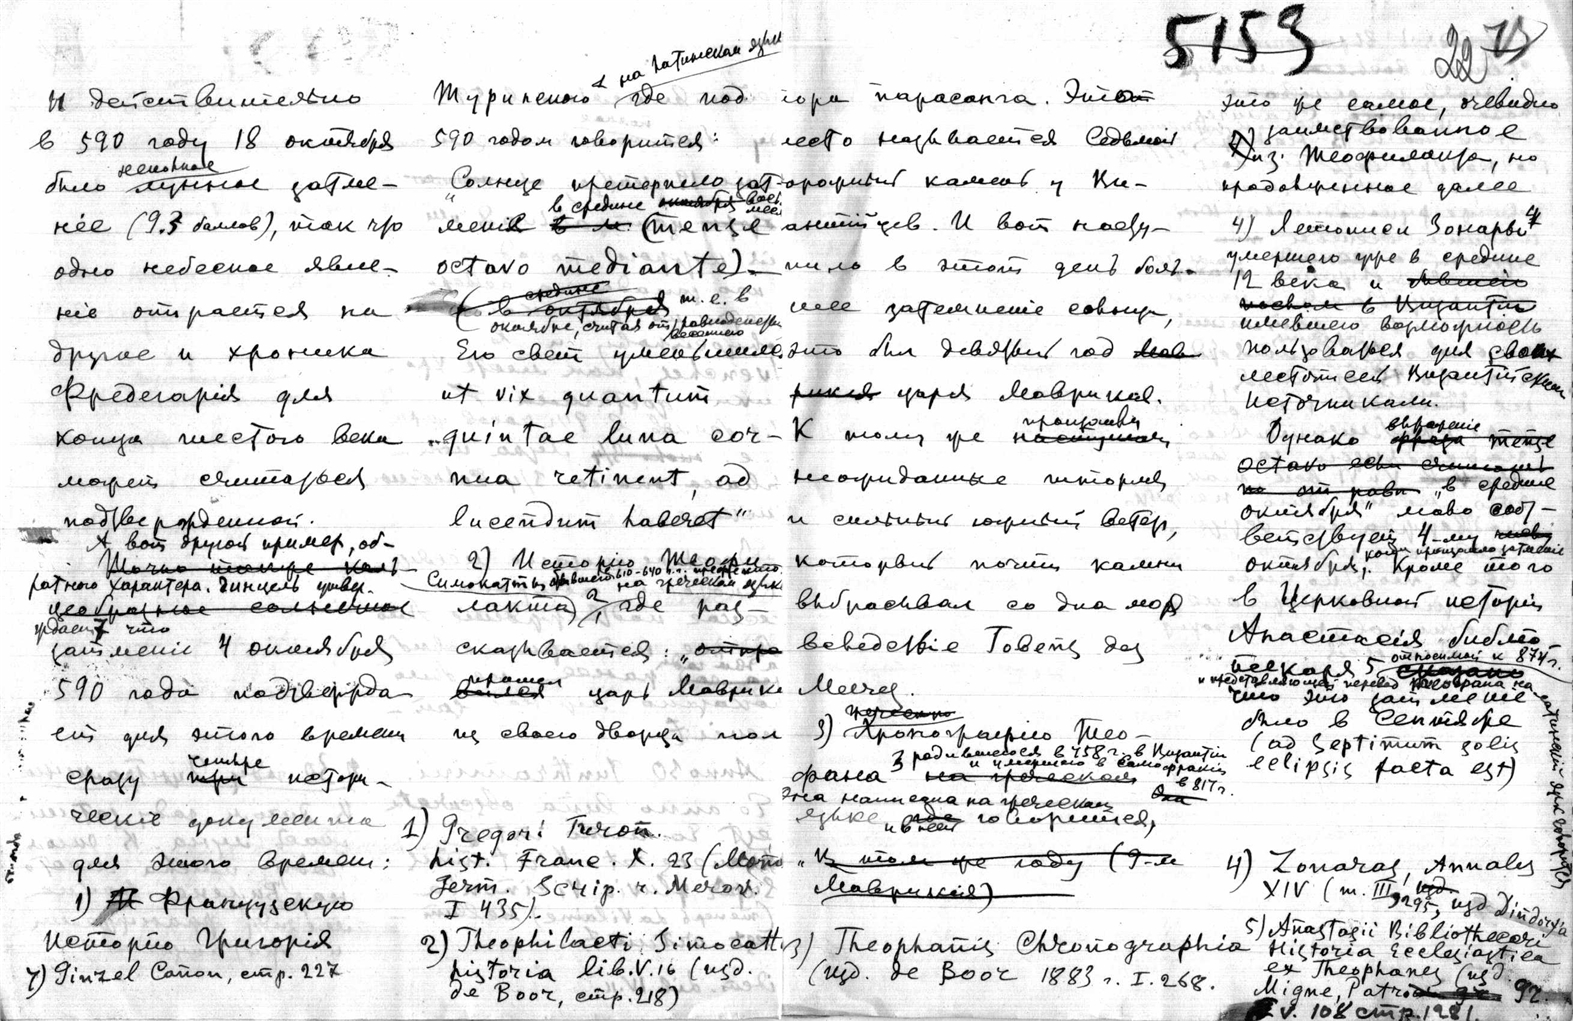 5153
22
И действительно
в 590 году 18 октября
неполное
было лунное затме-
ніе (9.3 баллов), так что
одно небесное явле-
ніе опирается на
другое и хроника
Фредегарія для
конца шестого века
может считаться
подтвержденной.
А вот другой пример, об-
ратного характера. Гинцель утвер-
ждает, что
затменіе 4 октября
590 года подтвержда-
ет для этого времени
сразу четыре истори-
ческіе документа
для этого времени:
1) Французскую
Исторію Григорія
7) Ginzel Canon, стр. 227
на латинском языке
Турского 1, где под
590 годом говорится:
„Солнце претерпело зат-
в средине
меніе (mense
octavo mediante) —
т. е. в
октябре, считая от равноденствія
весеннего
Его свет уменьшился
ut vix quantum
„quintae luna cor-
nua retinent, ad
lucendum haberet“
2) Исторію Теофи
Симокатты
на греческом языке
лакта) 2, где раз-
сказывается: „
прошел царь Маврикій
из своего дворца пол
1) Gregori Turon.
hist. Franc. X. 23 (Mono
Germ. Scrip. r. Merov.
I 435).
2) Theophilacti Simocatt
historia lib. V. 16 (изд.
de Boor, стр. 218)
тора парасанга. Это
место называется Седьмой
камень у Ви-
зантійцев. И вот насту-
пило в этот день боль-
шее затемненіе солнца,
это был девятый год
царя Маврикія.
К тому же
неожиданные шторм
и сильный южный ветер,
который почти камни
выбрасывал со дна моря
вследствіе
3) Хронографію Тео-
фана 3 родившегося в 758 г. в Византіи
и умершего в Самофракіи
в 817 г.
Она написана на греческом
языке и в ней говорится,
„К том же году (9-м
Маврикія)
3) Theophanis Chronographia
(изд. de Boor 1883 г. I. 268.
это же самое, очевидно
заимствованное
из Теофилакта, но
продолженное далее
4) Летописи Зонары 4
умершего уже в средине
12 века и
имевшего возможность
пользоваться для своих
летописей Византійскими
источниками.
Однако выраженіе mense
„в средине
октября“ мало соот-
ветствует 4-му
октября, когда произошло затменіе
Кроме того
в Церковной исторіи
Анастасія библіо-
текаря 5 относимой к 874 г.
и представляющей перевод Теофана на
латинскій язык говорится
что это затменіе
было в Сентябре
(ad Septimum solis
eclipsis facta est)
4) Zonaras, Annales
XIV (т. III, 295, изд Dindorfa
5) Anastasii Bibliothecari
Historia Ecclesiastica
ex Theophanes (изд.
Migne, Patri
v. 108 стр. 1281.